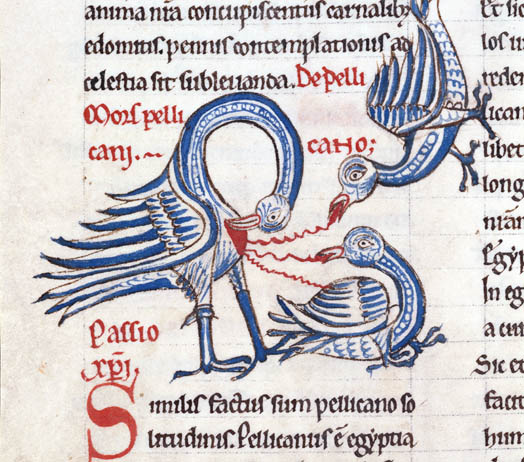 anima nr̄a concupiscentiis carnalib;
edomitis. pennis contemplationis ad
celestia sit subleuanda. De pelli
Mors pelli cano;
cani.
Passio
xp̄i,
Similis factus sum pellicano so
litudinis. Pellicanus ē egyptia
Et sic
los
libet
long
In eg
a cur
Sic et
facit
hum